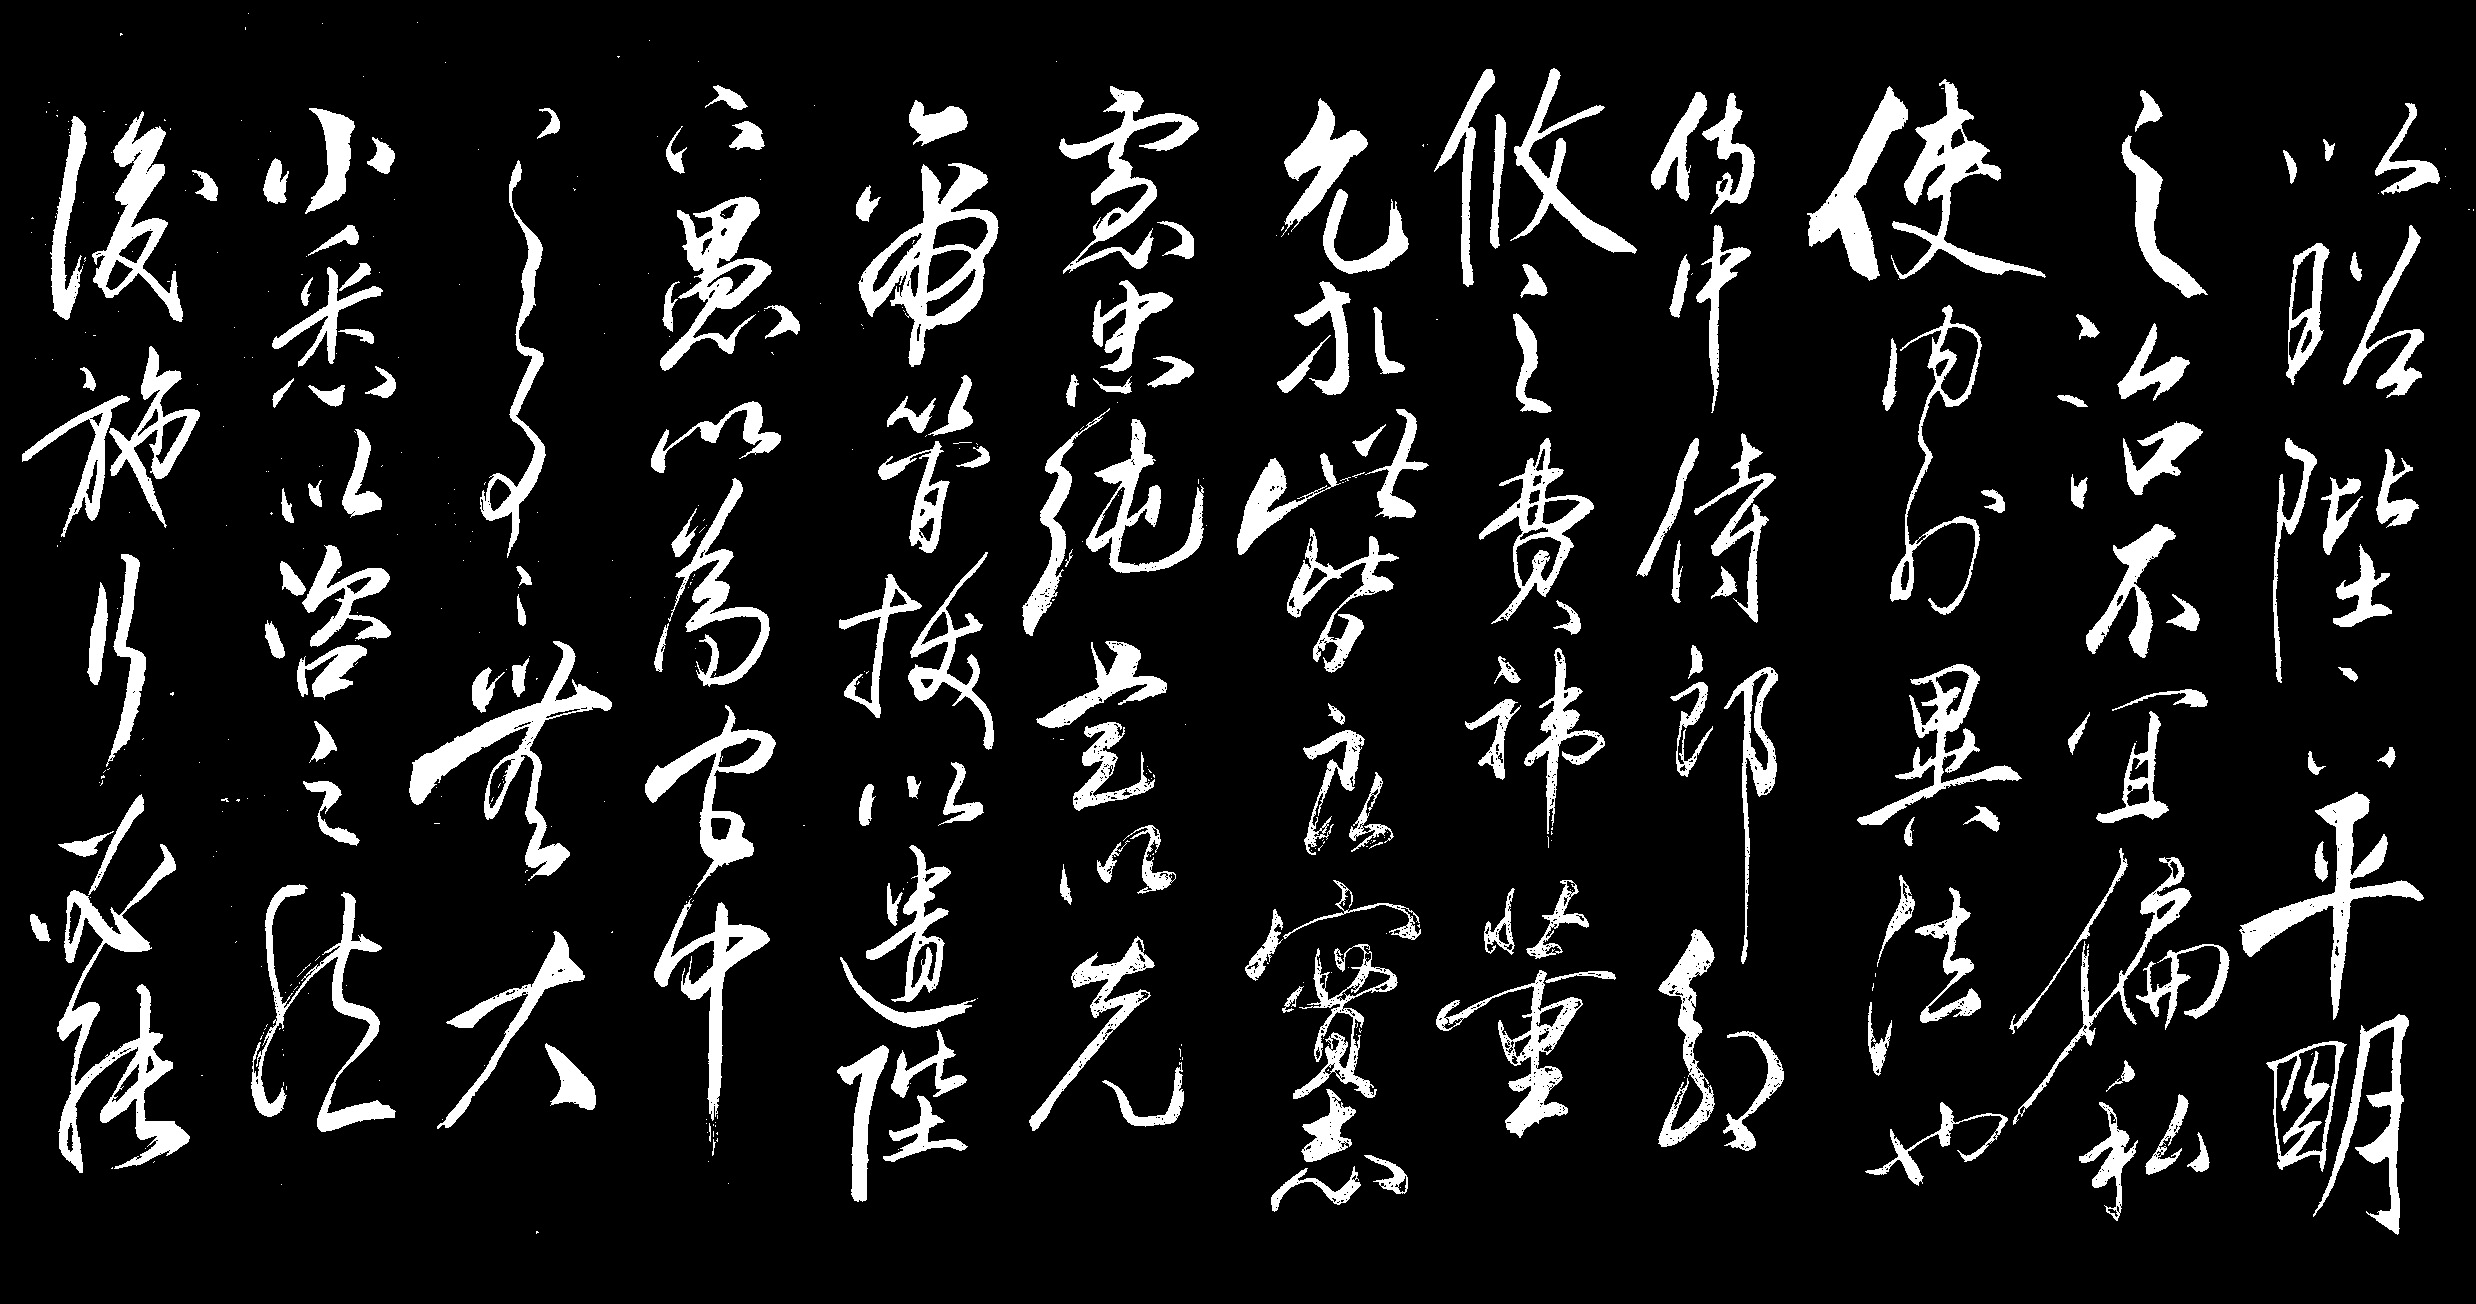 以昭陛下平明
之治不宜偏私
使内外異法也
侍中侍郎郭
攸之費禕董
允等此皆良實志
慮忠純是以先
帝簡拔以遺陛
下愚以為宮中
之事〻無大
小悉以咨之然
後施行必能